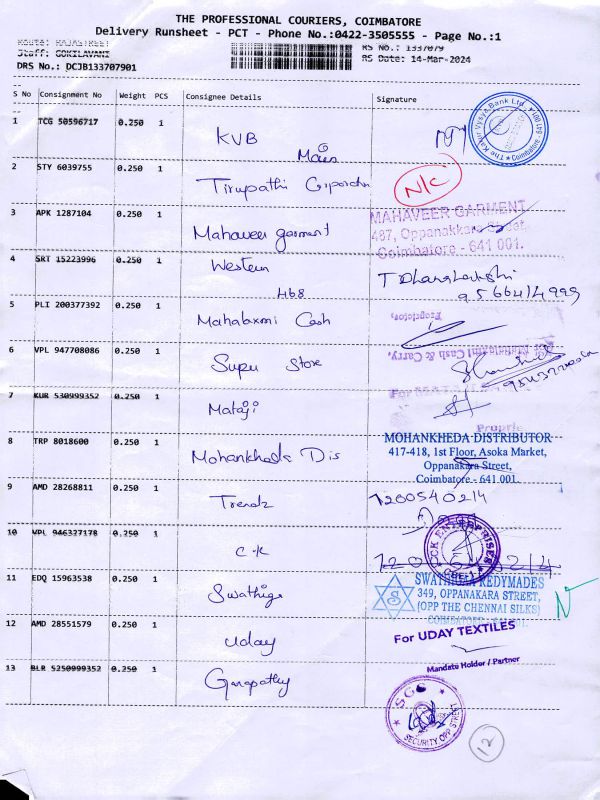 THE PROFESSIONAL COURIERS, COIMBATORE
Delivery Runsheet - PCT - Phone No.:0422-3505555 - Page No.:1
Route: RAJASTREET
Staff: GOKILAVANI
RS No.: 1337079
DRS No.: DCJB133707901
RS Date: 14-Mar-2024
S No Consignment No Weight PCS Consignee Details Signature
1 TCG 50596717 0.250 1 KVB
Main
The Karur Vysya Bank Ltd. Coimbatore - 641 001
2 STY 6039755 0.250 1 Tirupathi N/C
3 APK 1287104 0.250 1 Mahaveer garment
MAHAVEER GARMENT
487, Oppanakkara Street,
Coimbatore - 641 001.
4 SRT 15223996 0.250 1 Western
468
5 PLI 200377392 0.250 1 Mahalaxmi Cash
Proprietor,
6 VPL 947708086 0.250 1 Supu Store
7 KUR 530999352 0.250 1 Mataji
8 TRP 8018600 0.250 1 Mohankheda Dis
MOHANKHEDA DISTRIBUTOR
417-418, 1st Floor, Asoka Market,
Oppanakara Street,
Coimbatore - 641 001.
9 AMD 28268811 0.250 1 Trendz
1200540214
10 VPL 946327178 0.250 1 C.K
CCK ENTERPRISES
11 EDQ 15963538 0.250 1 Swathiga
SWATHIGAA REDYMADES
349, OPPANAKARA STREET,
(OPP THE CHENNAI SILKS)
COIMBATORE - 641 001.
12 AMD 28551579 0.250 1 Uday
For UDAY TEXTILES
Mandate Holder / Partner
13 BLR 5250999352 0.250 1 Ganapathy
SGS
SECURITY OPP STREET
12